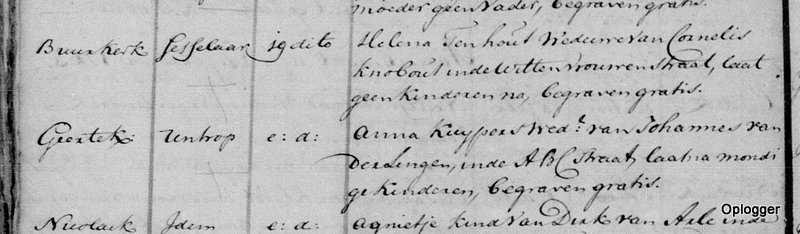 moeder geen Vader, begraven gratis.
Buurkerk Jesselaar 19 dito Helena Tenhout Weduwe van Cornelis
Knobout inde Wittevrouwen Straat, laat
geen Kinderen na, begraven gratis.
Geertek: Untrop e: d: Anna Kuypers Wed:e van Johannes van
Der Lingen, inde ABC Straat, laat na mondi
ge Kinderen, begraven gratis.
Nicolaik Idem e: d: Agnietje kind van Dirk van Arle inde
Oplogger